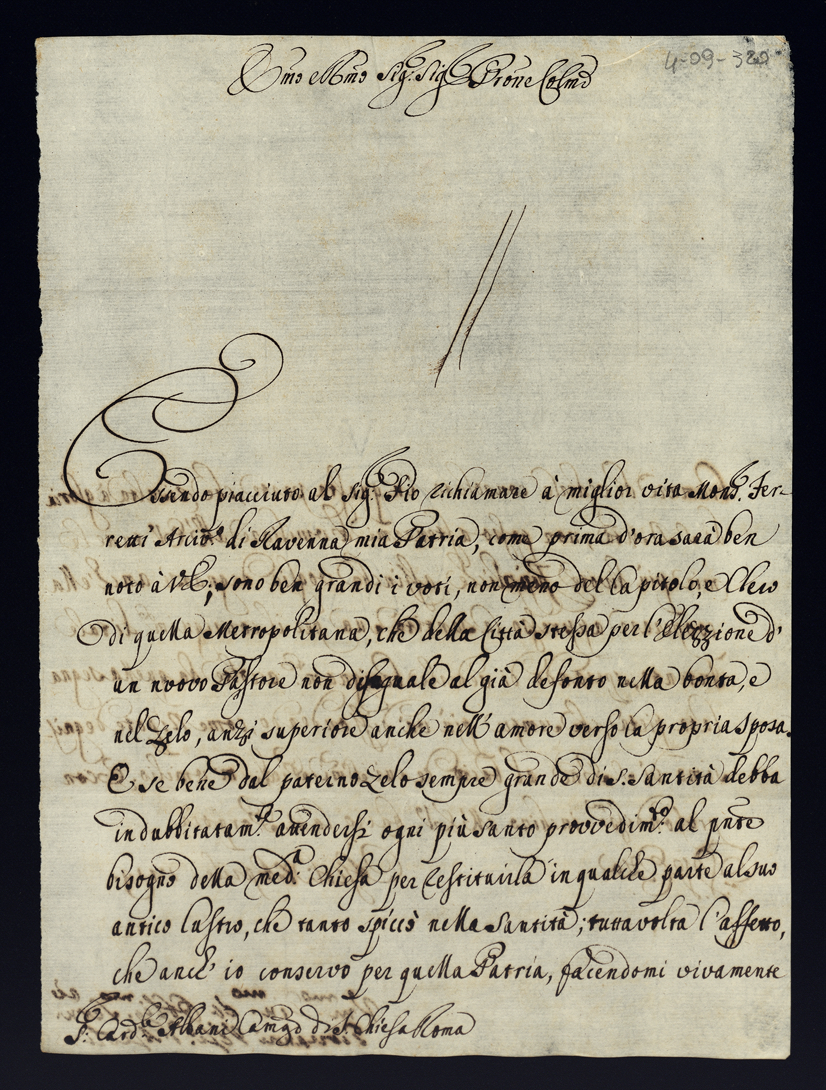 4-09-320
Emo e Rmo Sig.r Sig.r Prone Colmo
Essendo piacciuto al Sig.r Dio richiamare à miglior vita Mons.r Fer-
retti Arciv.o di Ravenna mia Patria, come prima d'ora sarà ben
noto à V.E., sono ben grandi i voti, non meno del Capitolo, e Clero
di quella Metropolitana, che della Città stessa per l'elezzione d'
un nuovo Pastore non diseguale al già defonto nella bontà, e
nel zelo, anzi superiore anche nell'amore verso la propria sposa.
E se bene dal paterno zelo sempre grande di S. Santità debba
indubbitatam.te attendersi ogni più santo provvedim.to al pnte
bisogno della med.a Chiesa per restituirla in qualche parte al suo
antico lustro, che tanto spiccò nella santità; tuttavolta l'affetto,
che anch'io conservo per quella Patria, facendomi vivamente
S.r Card.le Albani Camgo di S. Chiesa Roma